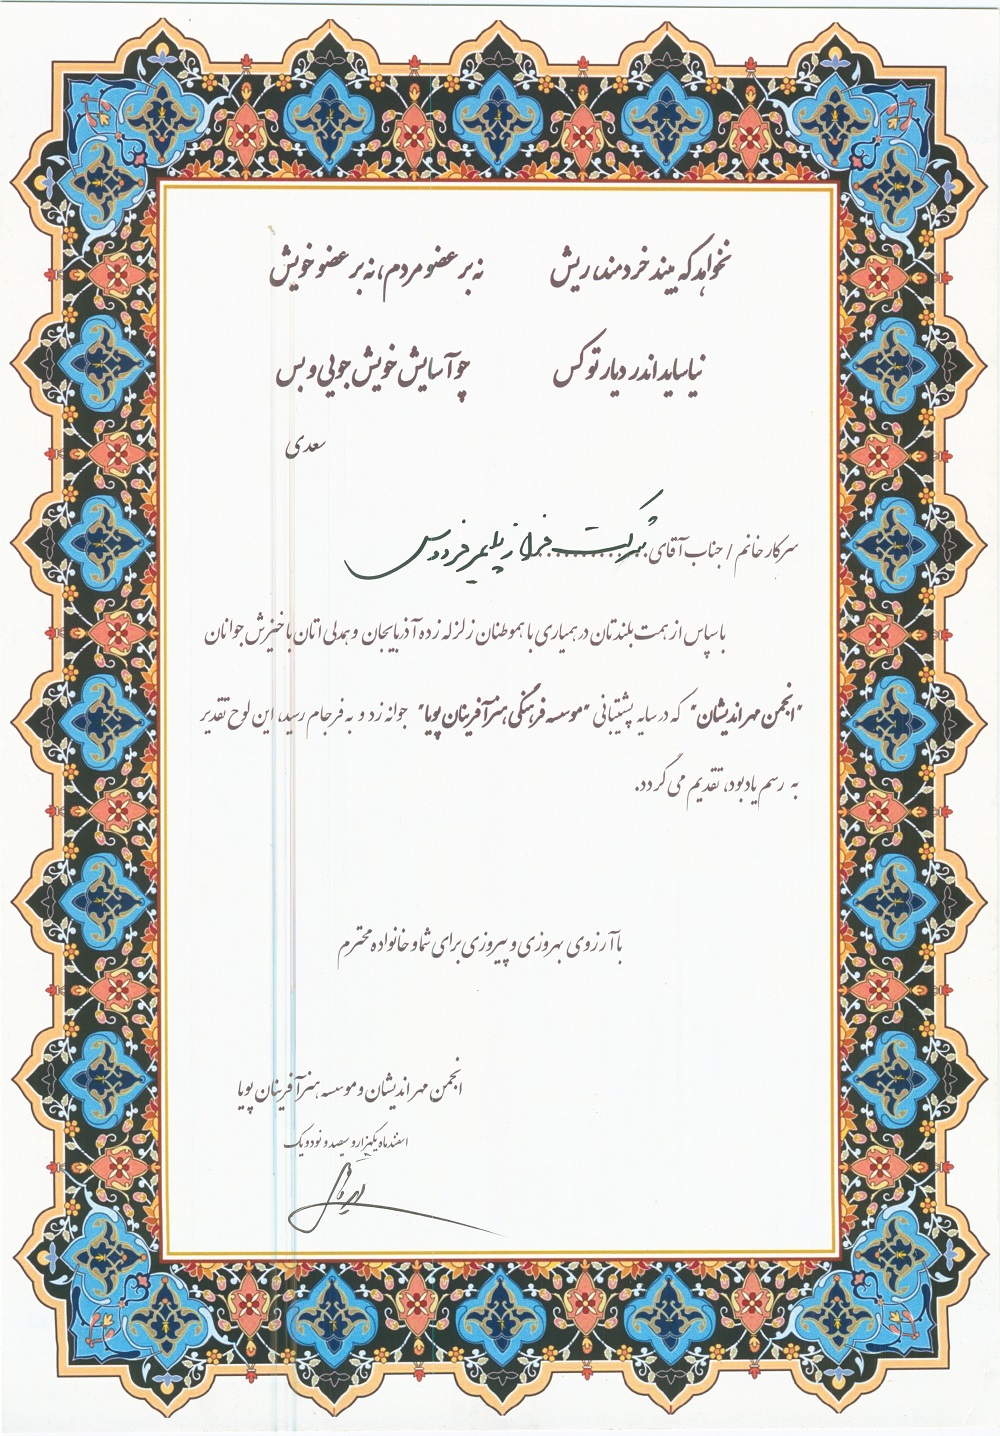 نخواهد که بیند خردمند، ریش نه بر عضو مردم، نه بر عضو خویش
نیاساید اندر دیار تو کس چو آسایش خویش جویی و بس
سعدی
سرکار خانم / جناب آقای شرکت فراز پلیمر فردوس
با سپاس از همت بلندتان در همیاری با هموطنان زلزله زده آذربایجان و همدلی اتان با خیزش جوانان
"انجمن مهراندیشان" که در سایه پشتیبانی "موسسه فرهنگی هنرآفرینان پویا" جوانه زد و به فرجام رسید، این لوح تقدیر
به رسم یادبود، تقدیم می گردد.
با آرزوی بهروزی و پیروزی برای شما و خانواده محترم
انجمن مهراندیشان و موسسه هنرآفرینان پویا
اسفندماه یکهزار و سیصد و نود و یک